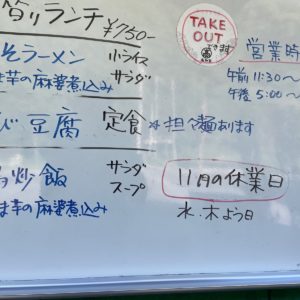 替りランチ ¥750-
そラーメン 小ライス
サラダ
ま芋の麻婆煮込み
び豆腐 定食 ※担々麺あります
炒飯 サンダ
スープ
ま芋の麻婆煮込み
TAKE
OUT
できます
営業時
午前11:30〜
午後5:00〜
11月の休業日
水、木よう日